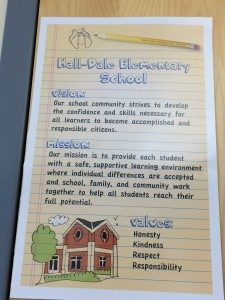 Hall-Dale Elementary
School
Vision:
Our school community strives to develop
the confidence and skills necessary for
all learners to become accomplished and
responsible citizens.
Mission:
Our mission is to provide each student
with a safe, supportive learning environment
where individual differences are accepted
and school, family, and community work
together to help all students reach their
full potential.
Values:
Honesty
Kindness
Respect
Responsibility